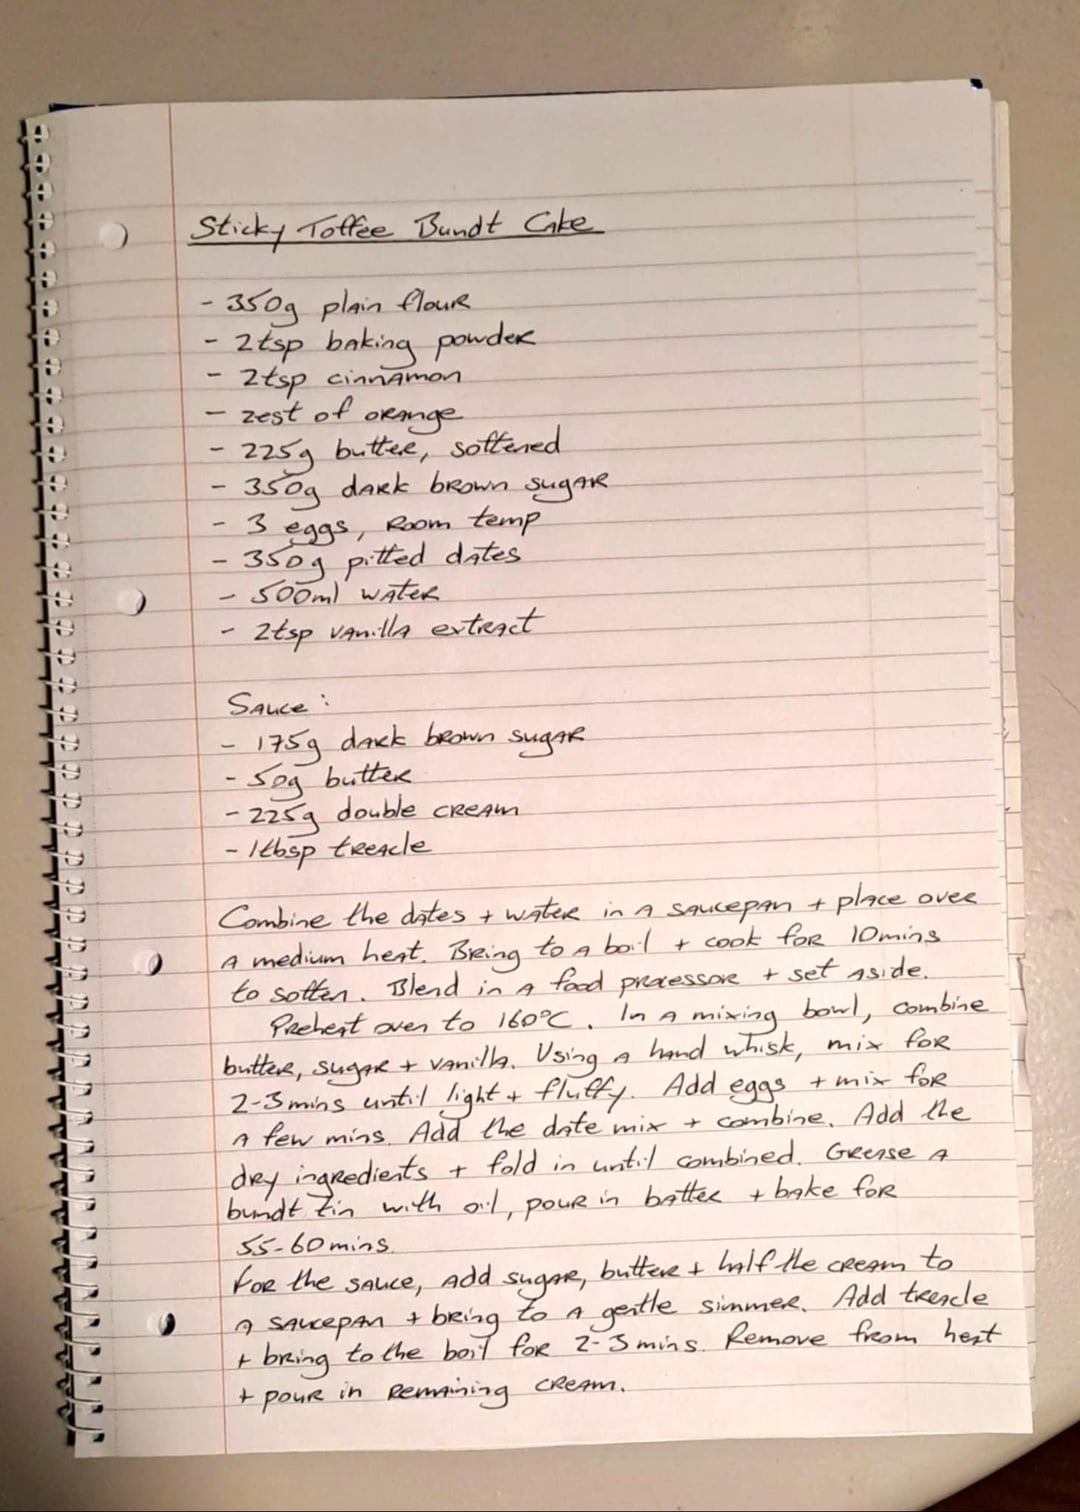 Sticky Toffee Bundt Cake
- 350g plain flour
- 2tsp baking powder
- 2tsp cinnamon
- zest of orange
- 225g butter, softened
- 350g dark brown sugar
- 3 eggs, room temp
- 350g pitted dates
- 500ml water
- 2tsp vanilla extract
Sauce:
- 175g dark brown sugar
- 50g butter
- 225g double cream
- 1tbsp treacle
Combine the dates + water in a saucepan + place over
a medium heat. Bring to a boil + cook for 10mins
to soften. Blend in a food processor + set aside.
Preheat oven to 160°C. In a mixing bowl, combine
butter, sugar + vanilla. Using a hand whisk, mix for
2-3mins until light + fluffy. Add eggs + mix for
a few mins. Add the date mix + combine. Add the
dry ingredients + fold in until combined. Grease a
bundt tin with oil, pour in batter + bake for
55-60mins.
For the sauce, add sugar, butter + half the cream to
a saucepan + bring to a gentle simmer. Add treacle
+ bring to the boil for 2-3mins. Remove from heat
+ pour in remaining cream.